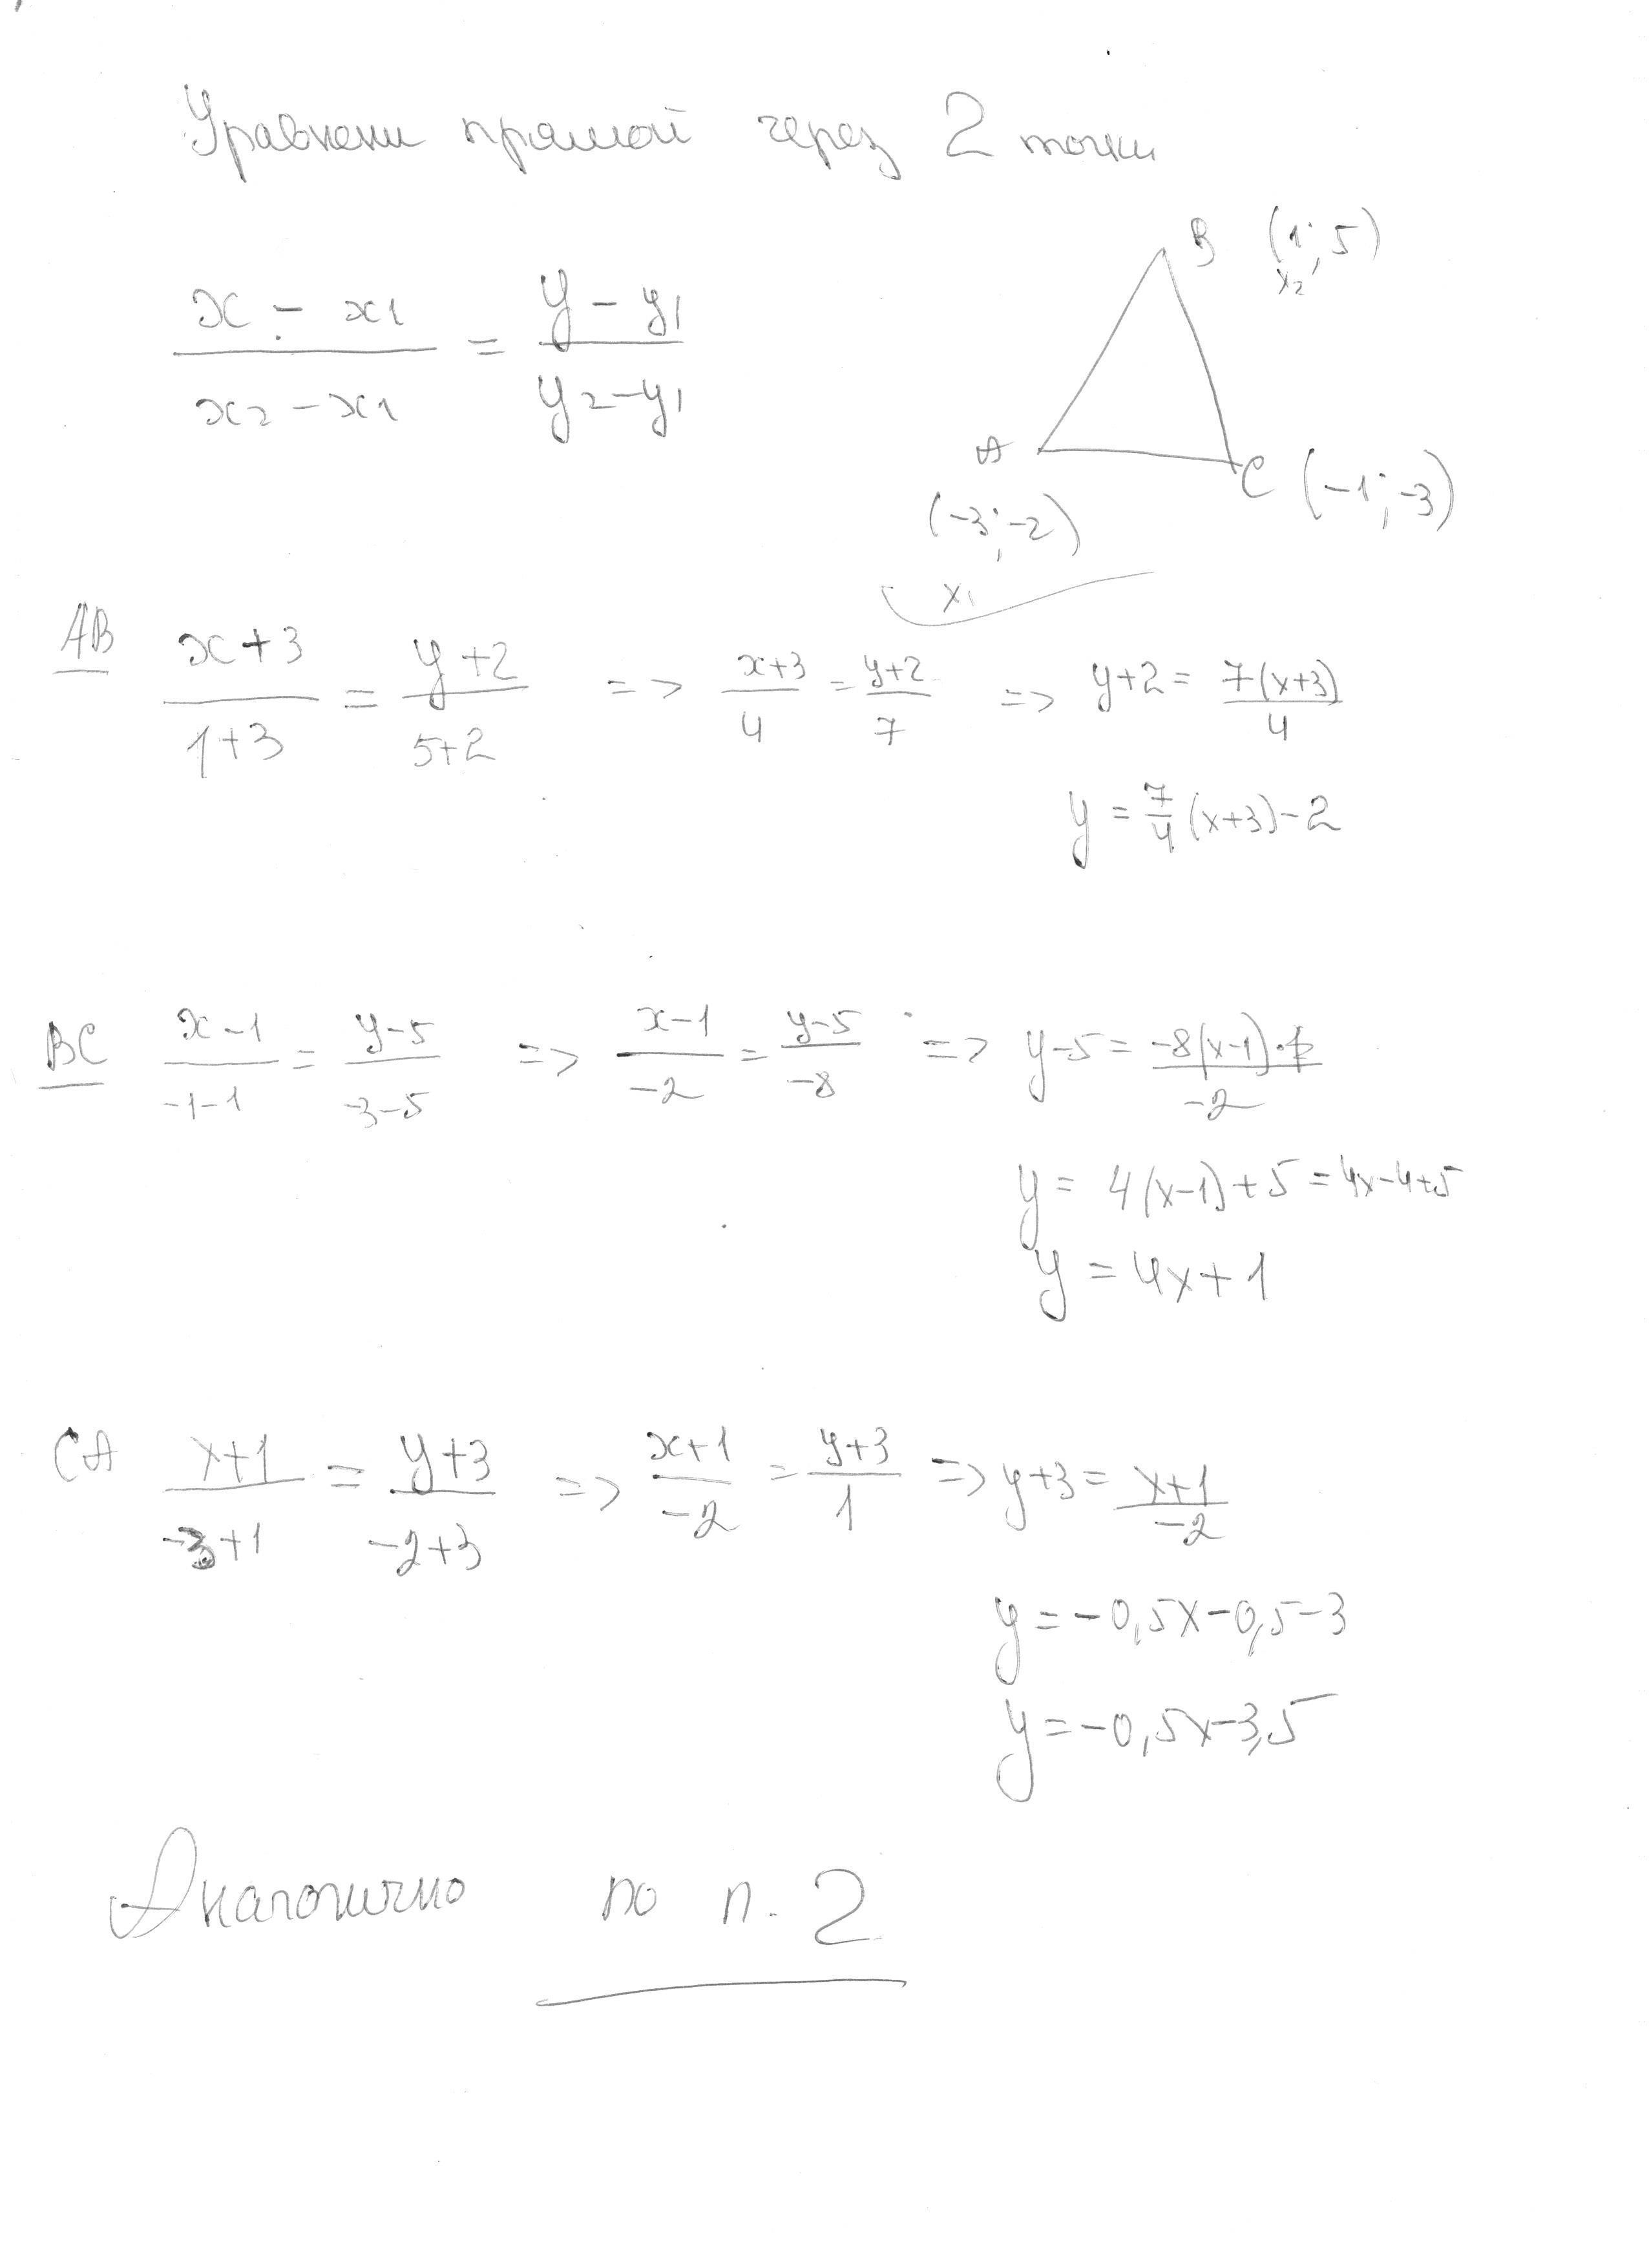 Уравнени прямой через 2 точки
x - x1 / x2 - x1 = y - y1 / y2 - y1
B (1; 5)
x2
A
C (-1; -3)
(-3; -2)
x1
AB x+3 / 1+3 = y+2 / 5+2 => x+3 / 4 = y+2 / 7 => y+2 = 7(x+3) / 4
y = 7/4 (x+3) - 2
BC x-1 / -1-1 = y-5 / -3-5 => x-1 / -2 = y-5 / -8 => y-5 = -8(x-1) / -2
y = 4(x-1)+5 = 4x-4+5
y = 4x+1
CA x+1 / -3+1 = y+3 / -2+3 => x+1 / -2 = y+3 / 1 => y+3 = x+1 / -2
y = -0,5x-0,5-3
y = -0,5x-3,5
Аналогично по п. 2